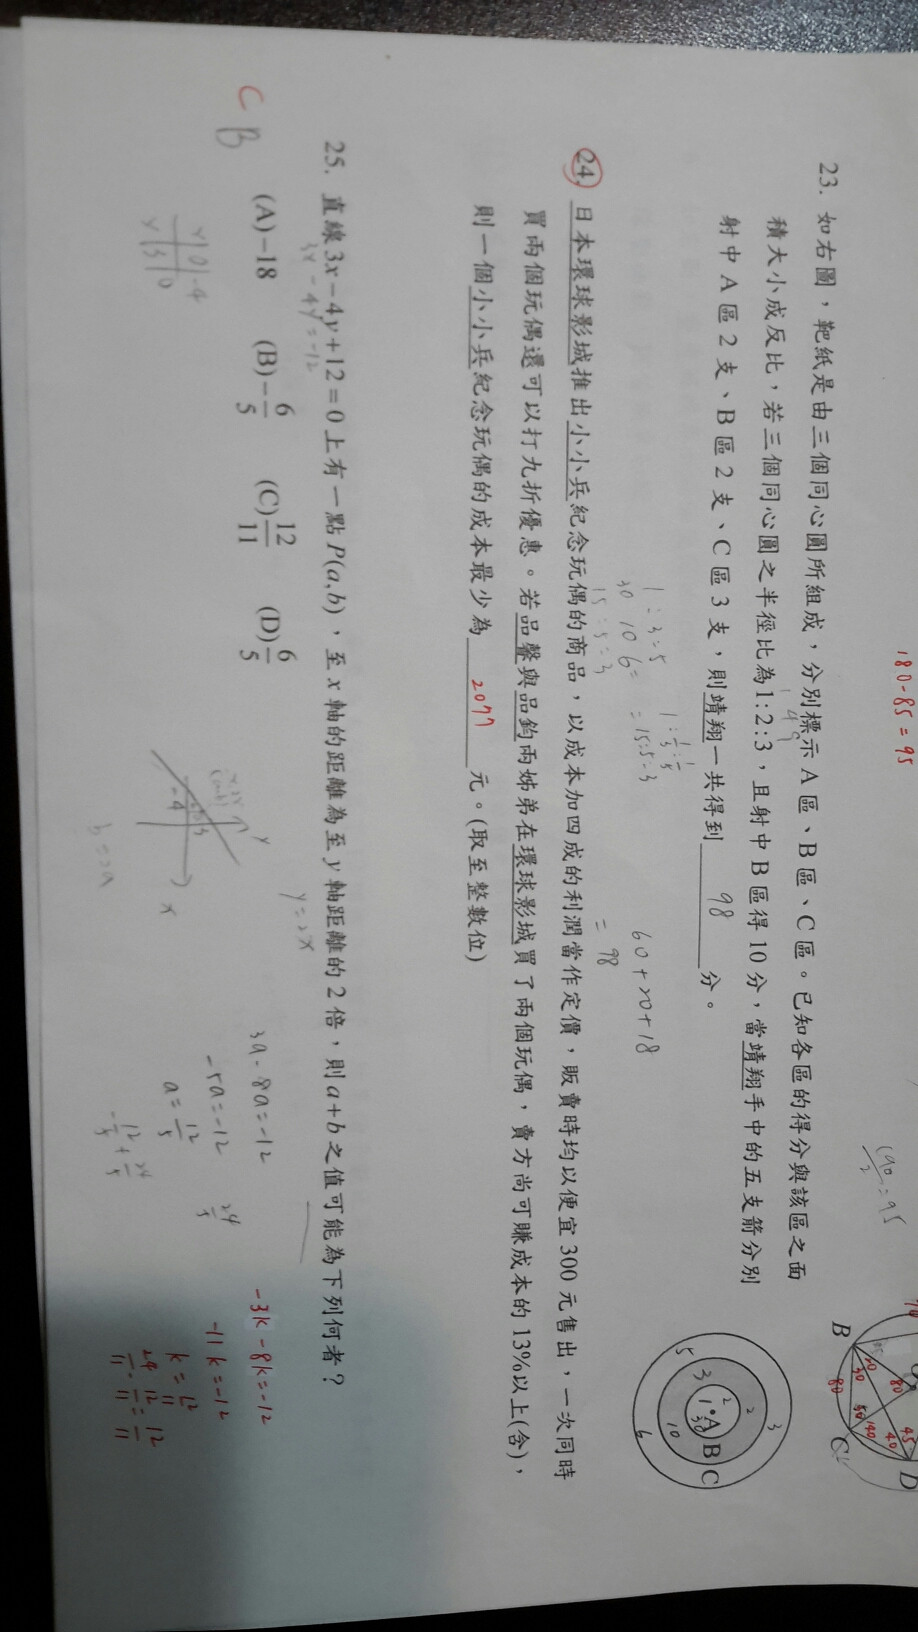 180-85=95
190/2=95
70
B
C
D
80
80
45
40
140
50
23. 如右圖，靶紙是由三個同心圓所組成，分別標示 A 區、B 區、C 區。已知各區的得分與該區之面
積大小成反比，若三個同心圓之半徑比為1:2:3，且射中 B 區得 10 分，當靖翔手中的五支箭分別
射中 A 區 2 支、B 區 2 支、C 區 3 支，則靖翔一共得到 98 分。
1:3:5
30 10 6
15:5:3
1:1/3:1/5
=15:5:3
60+20+18
=98
A
B
C
1
2
3
2
3
5
30
10
6
24. 日本環球影城推出小小兵紀念玩偶的商品，以成本加四成的利潤當作定價，販賣時均以便宜 300 元售出，一次同時
買兩個玩偶還可以打九折優惠。若品馨與品鈞兩姊弟在環球影城買了兩個玩偶，賣方尚可賺成本的 13%以上(含)，
則一個小小兵紀念玩偶的成本最少為 2077 元。(取至整數位)
25. 直線 3x-4y+12=0 上有一點 P(a,b)，至 x 軸的距離為至 y 軸距離的 2 倍，則 a+b 之值可能為下列何者？
3x-4y=-12
y=2x
C
B
(A)-18 (B)-6/5 (C)12/11 (D)6/5
x|0|-4
y|3|0
y
x
-4
3
3a-8a=-12
-5a=-12
a=12/5
24/5
12/5+24/5
-3k-8k=-12
-11k=-12
k=12/11
24/11-12/11=12/11